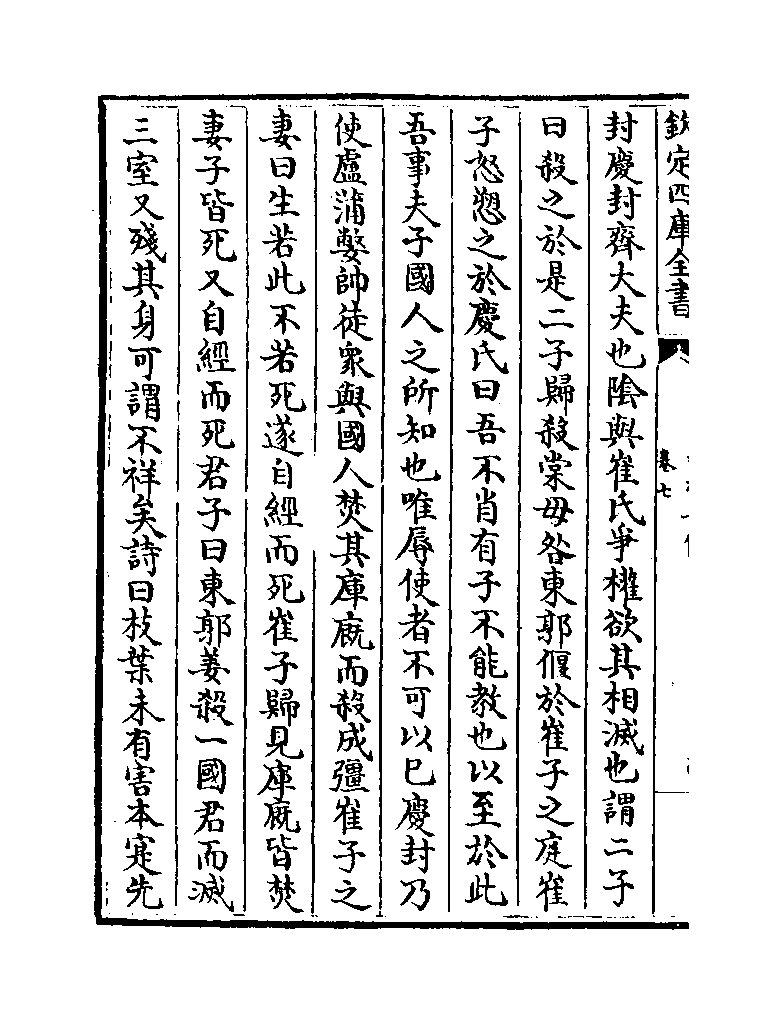 欽定四庫全書
卷七
封慶封齊大夫也陰與崔氏爭權欲其相滅也謂二子
曰殺之於是二子歸殺棠毋咎東郭偃於崔子之庭崔
子怒愬之於慶氏曰吾不肖有子不能教也以至於此
吾事夫子國人之所知也唯辱使者不可以已慶封乃
使盧蒲嫳帥徒衆與國人焚其庫廐而殺成彊崔子之
妻曰生若此不若死遂自經而死崔子歸見庫廐皆焚
妻子皆死又自經而死君子曰東郭姜殺一國君而滅
三室又殘其身可謂不祥矣詩曰枝葉未有害本寔先